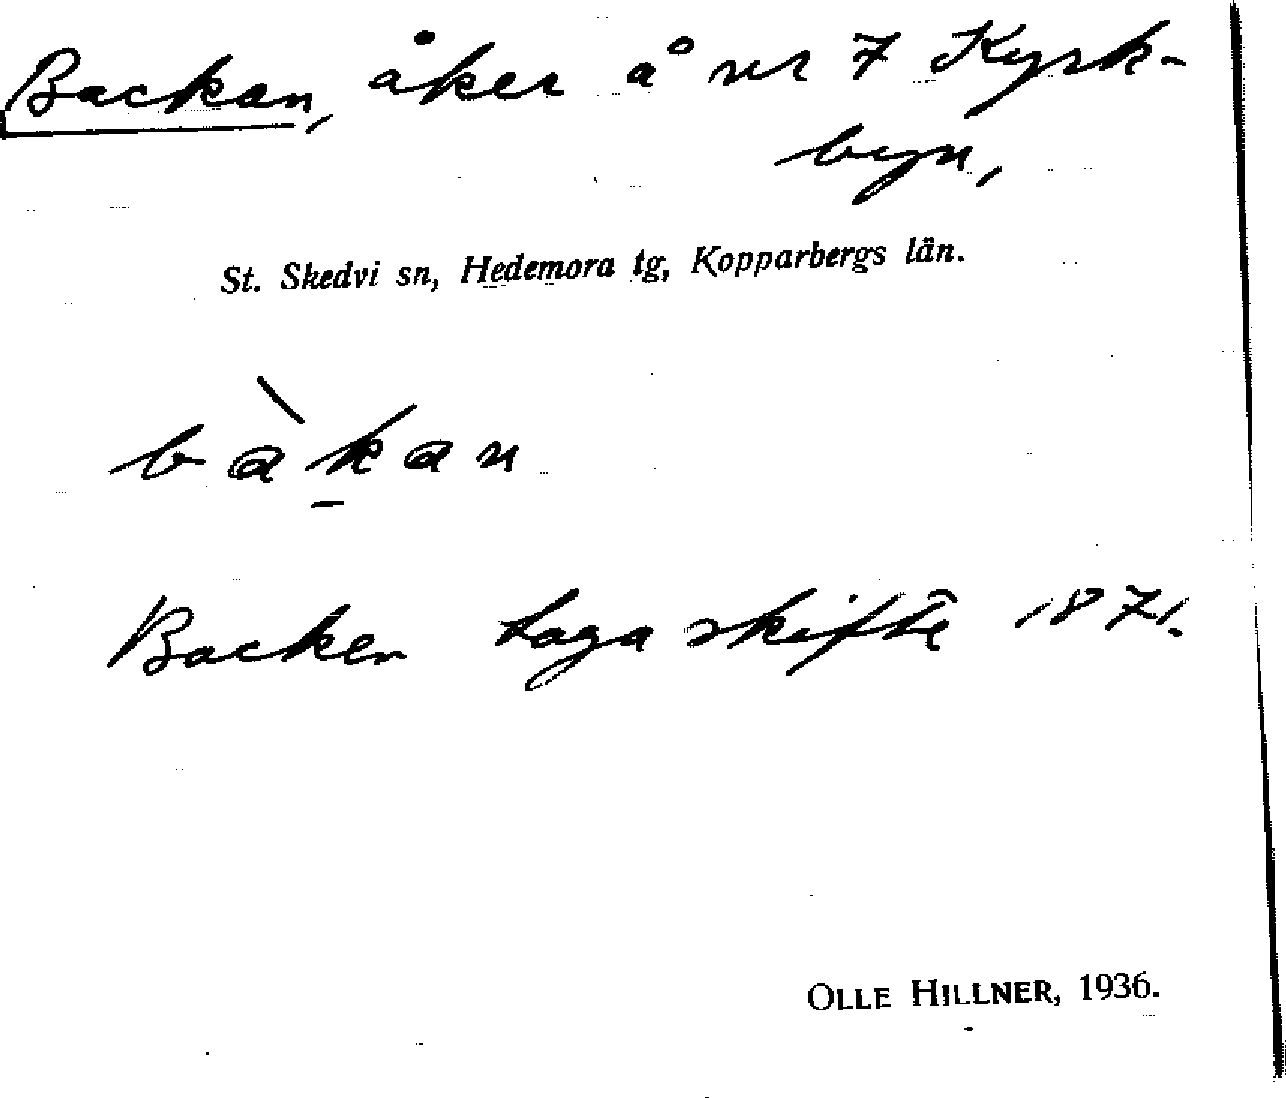 Backan, åker å nr 7 Kyrk-
byn,
St. Skedvi sn, Hedemora tg, Kopparbergs län.
bàk̠an
Backen Laga skifte 1871.
OLLE HILLNER, 1936.